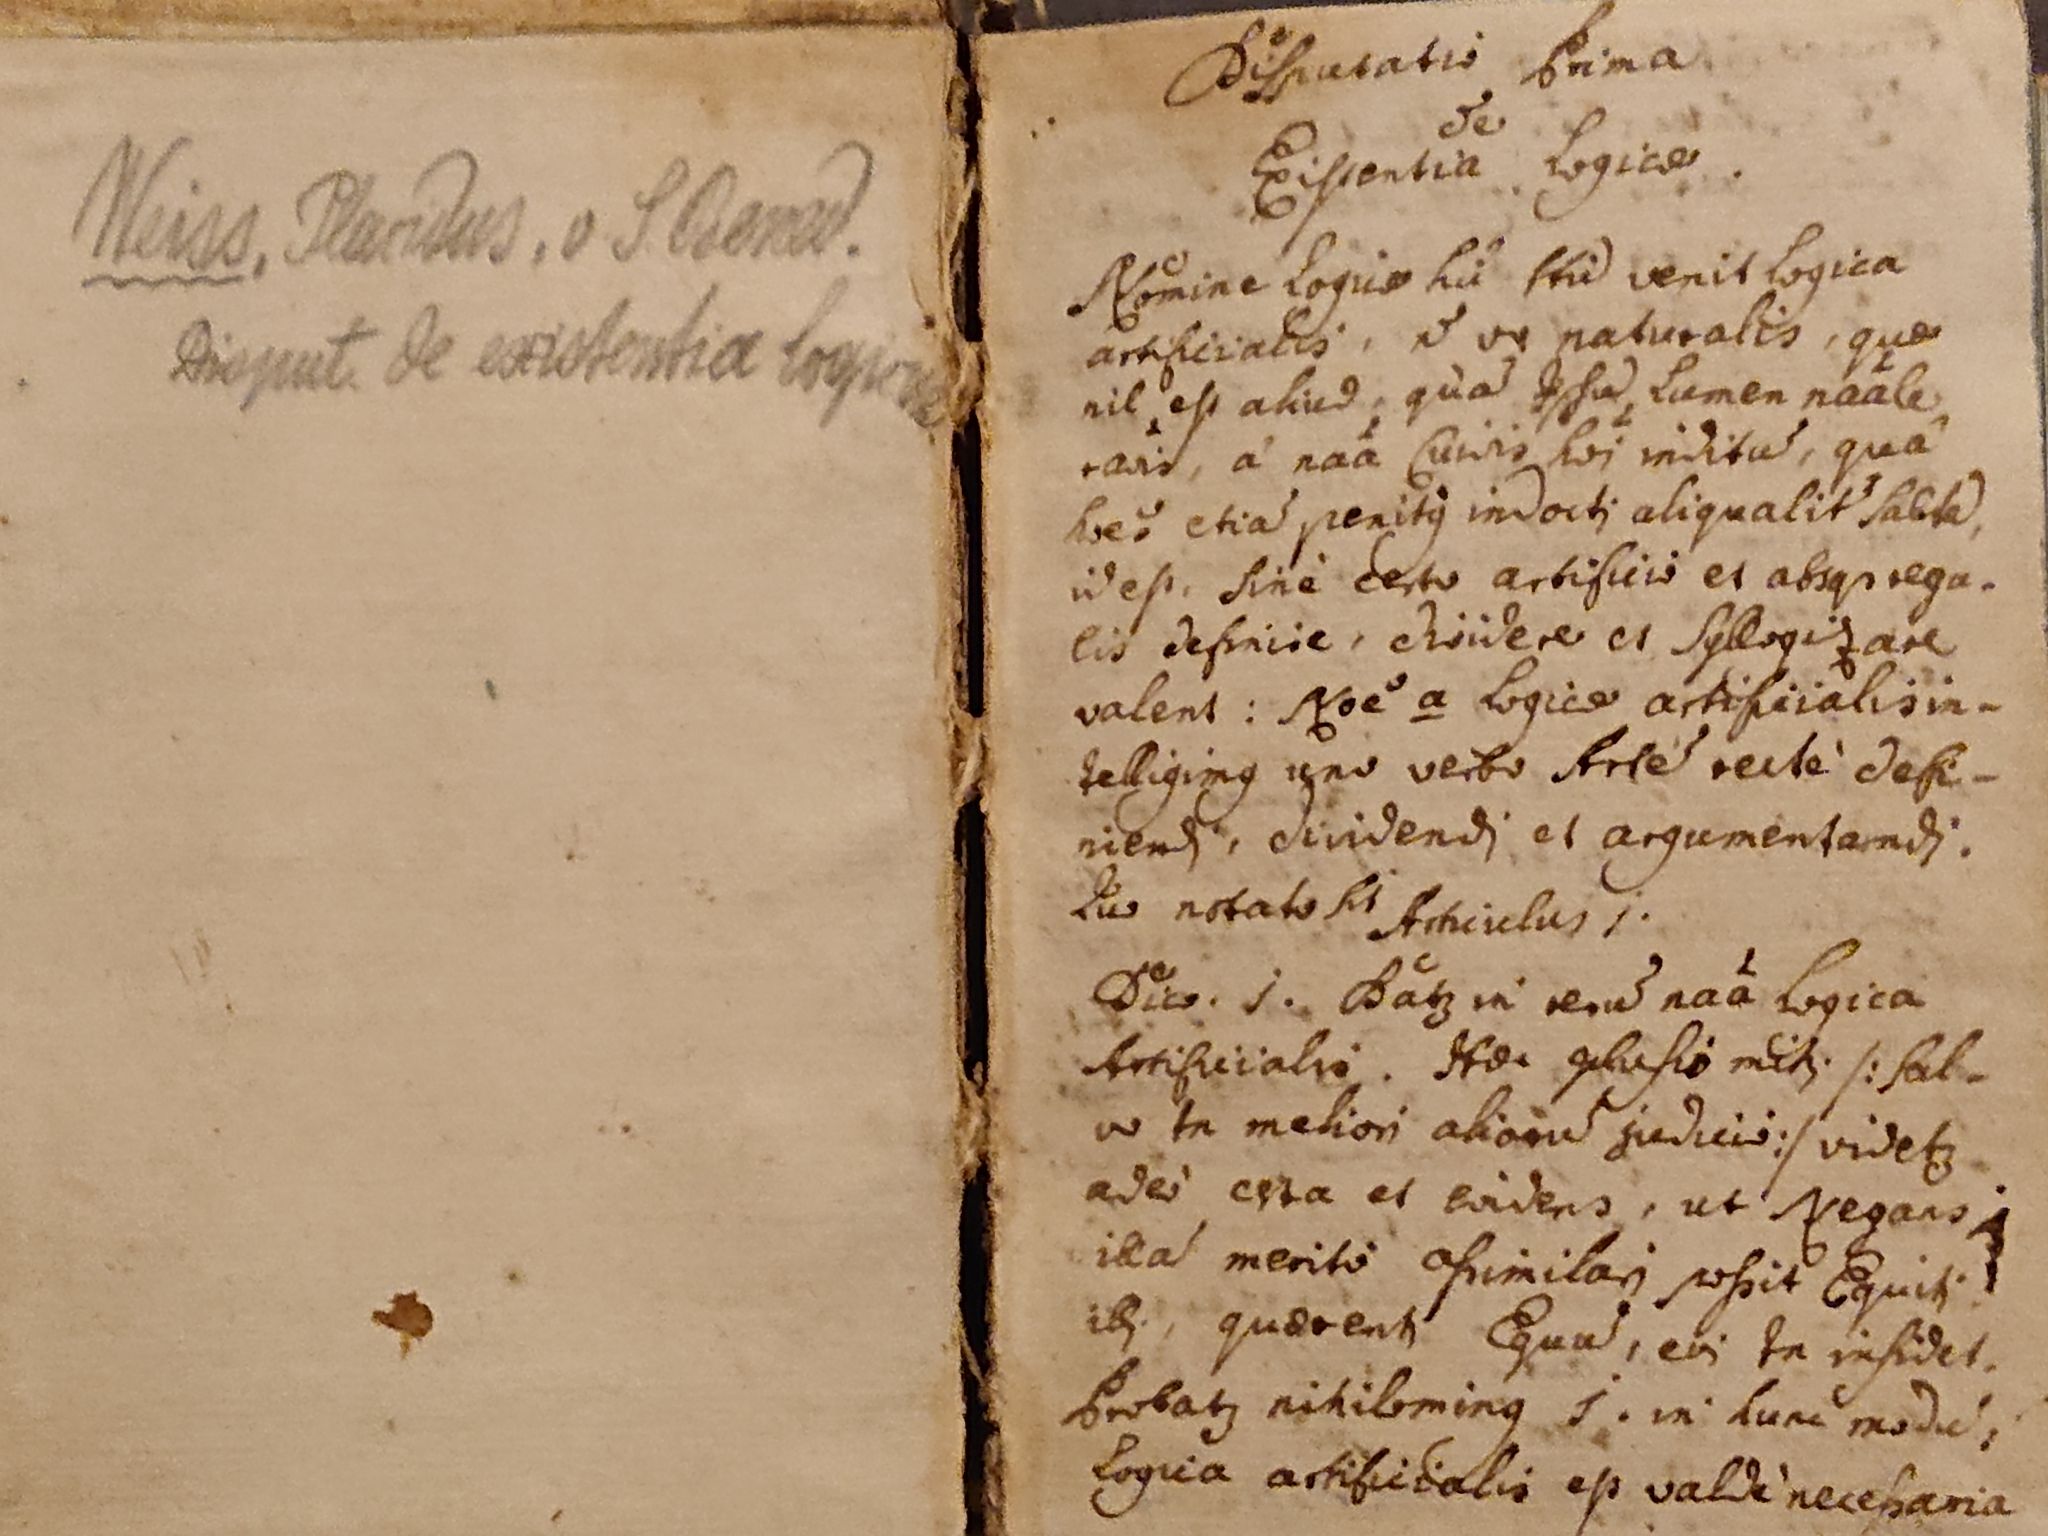 Weiss, Placidus, v S. Bened.
Disput. de existentia logicae
Disputatio Prima
de
Existentia Logicæ.
Nomine Logicæ hic venit Logica
artificialis, nō vō naturalis, quæ
nil est aliud, quā ipsū Lumen naāle
raōis, à naā cuivis hōi inditū, quā
hōes etiā penitq indocti aliqualit
id est, sine certo artificio et absq regu-
lis definire, dividere et syllogizare
valent: Noē a Logicæ artificialis in-
telligimq uno verbo Artē rectè defi-
niendi, dividendi et argumentandi.
notato sit
Articulus 1.
Dico. 1. Datʒ in rerū naā Logica
Artificialis. Hæc mihi /: sal-
vo tn meliori aliorū judicio:/ videtʒ
adeò certa et evidens, ut Negans
illā meritò assimilari possit Equiti
ibi, quærenti Equū, cui tn insidet.
Probatʒ nihilominq 1. in hunc modū,
Logica artificialis est valdè necessaria